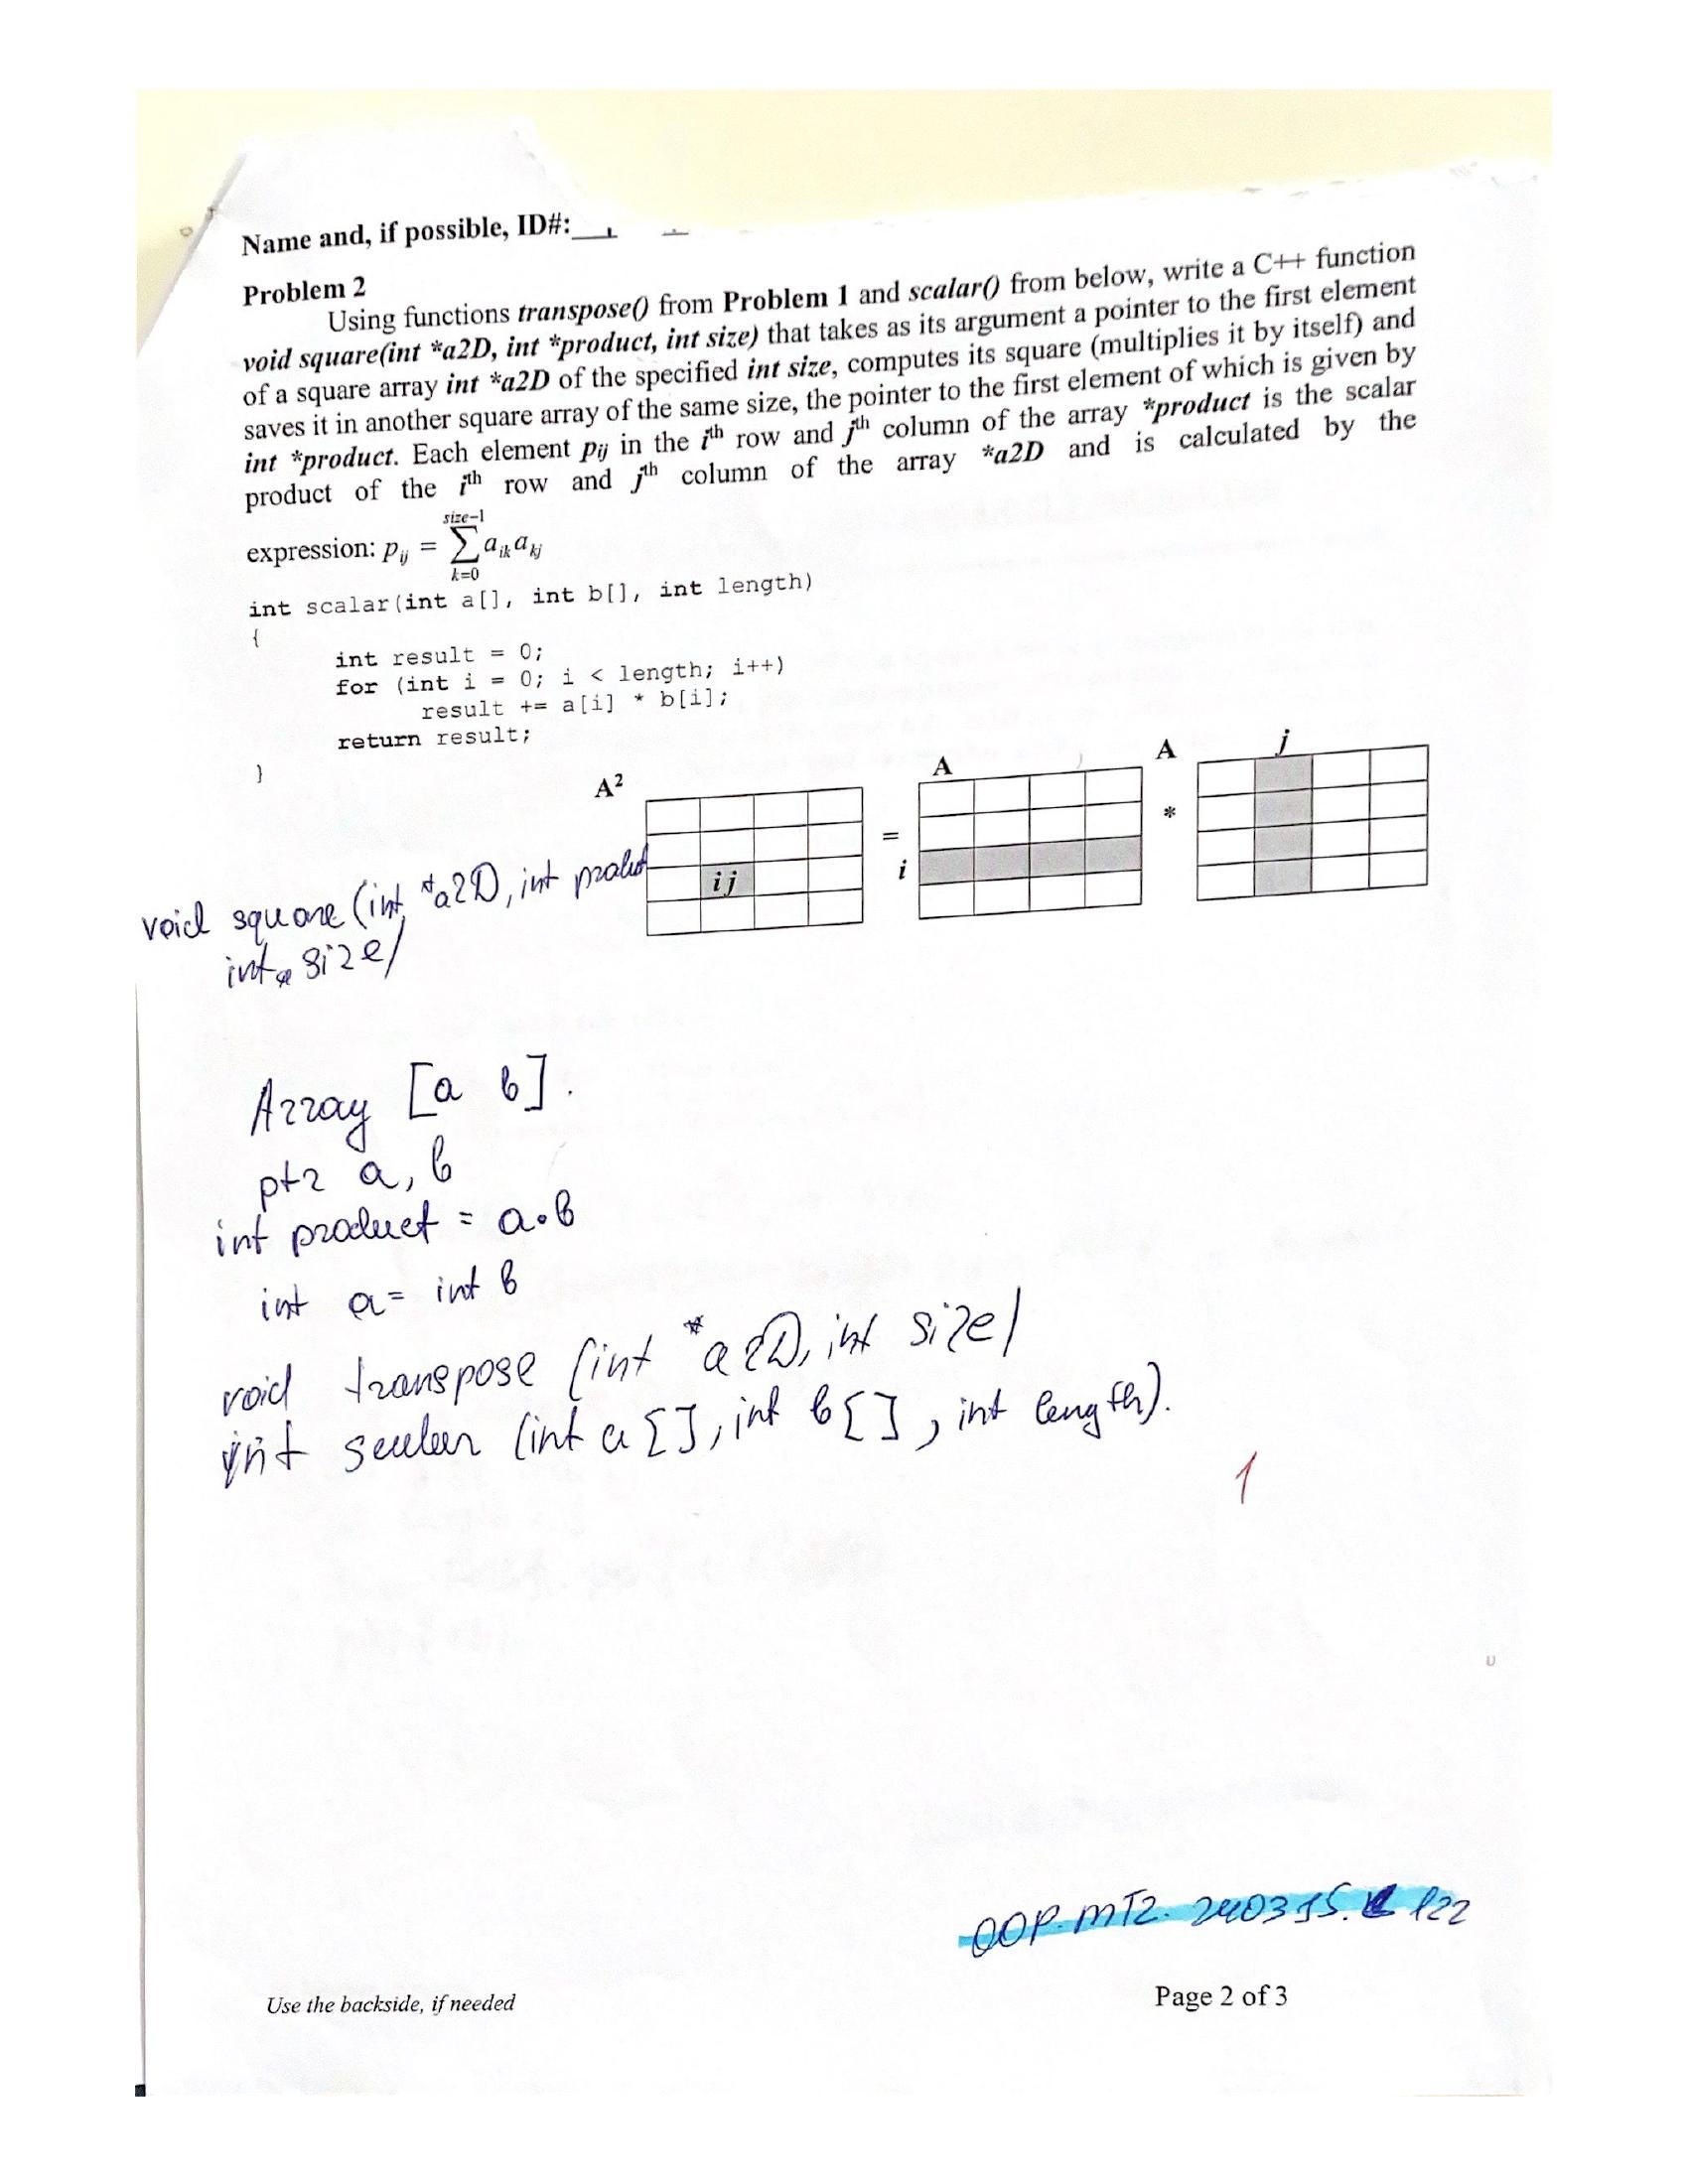 Name and, if possible, ID#:
Problem 2
Using functions transpose() from Problem 1 and scalar() from below, write a C++ function
void square(int *a2D, int *product, int size) that takes as its argument a pointer to the first element
of a square array int *a2D of the specified int size, computes its square (multiplies it by itself) and
saves it in another square array of the same size, the pointer to the first element of which is given by
int *product. Each element pij in the ith row and jth column of the array *product is the scalar
product of the ith row and jth column of the array *a2D and is calculated by the
size-1
expression: pij = ∑ aik akj
k=0
int scalar(int a[], int b[], int length)
{
int result = 0;
for (int i = 0; i < length; i++)
result += a[i] * b[i];
return result;
}
A² = A * A
j
i
ij
void square (int *a2D, int
int size)
Array [a b].
ptr a, b
int product = a·b
int a = int b
void transpose (int *a2D, int size)
int scalar (int a[], int b[], int length).
1
OOP.MT2. 240315. P22
Use the backside, if needed
Page 2 of 3